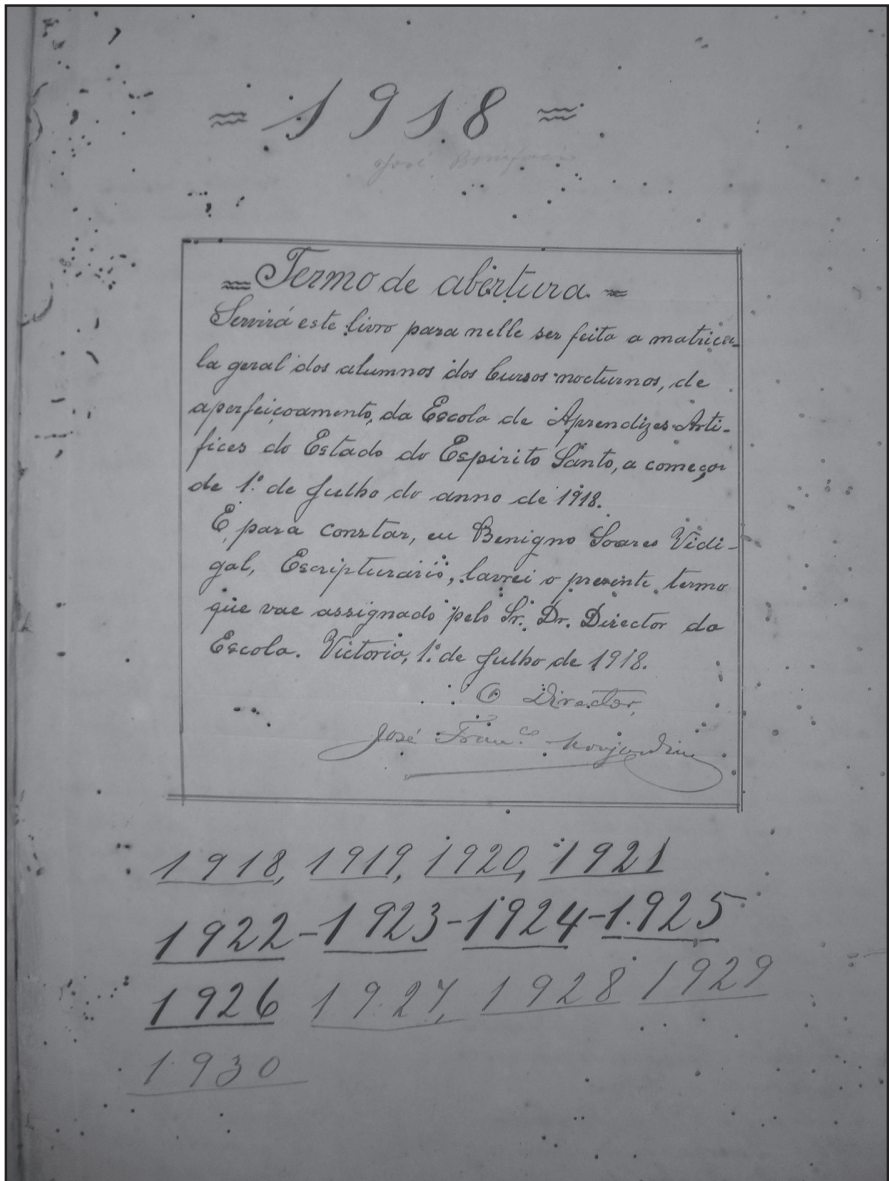 = 1918 =
José Bonifacio
= Termo de abertura. =
Servirá este livro para nelle ser feita a matricu-
la geral dos alumnos dos Cursos nocturnos, de
aperfeiçoamento, da Escola de Aprendizes Arti-
fices do Estado do Espirito Santo, a começar
de 1º de Julho do anno de 1918.
E para constar, eu Benigno Soares Vidi-
gal, Escripturario, lavrei o presente termo
que vae assignado pelo Sr. Dr. Director da
Escola. Victoria, 1º de Julho de 1918.
O Director,
José Franco Monjardim
1918, 1919, 1920, 1921
1922-1923-1924-1925
1926 1927, 1928 1929
1930